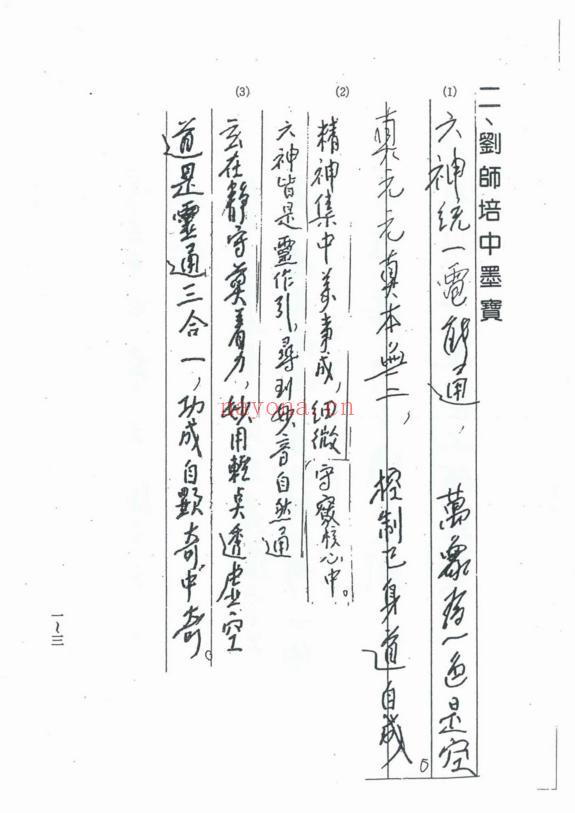 二、劉師培中墨寶
(1)
六神統一電能通，萬象為一色是空
真元元真本無二，控制己身道自成。
(2)
精神集中萬事成，細微守竅核心中。
六神皆是靈作引，尋到妙音自然通
(3)
玄在靜守莫着力，妙用輕点透虛空
道是靈通三合一，功成自顯奇中奇。
一~三
nayona.cn